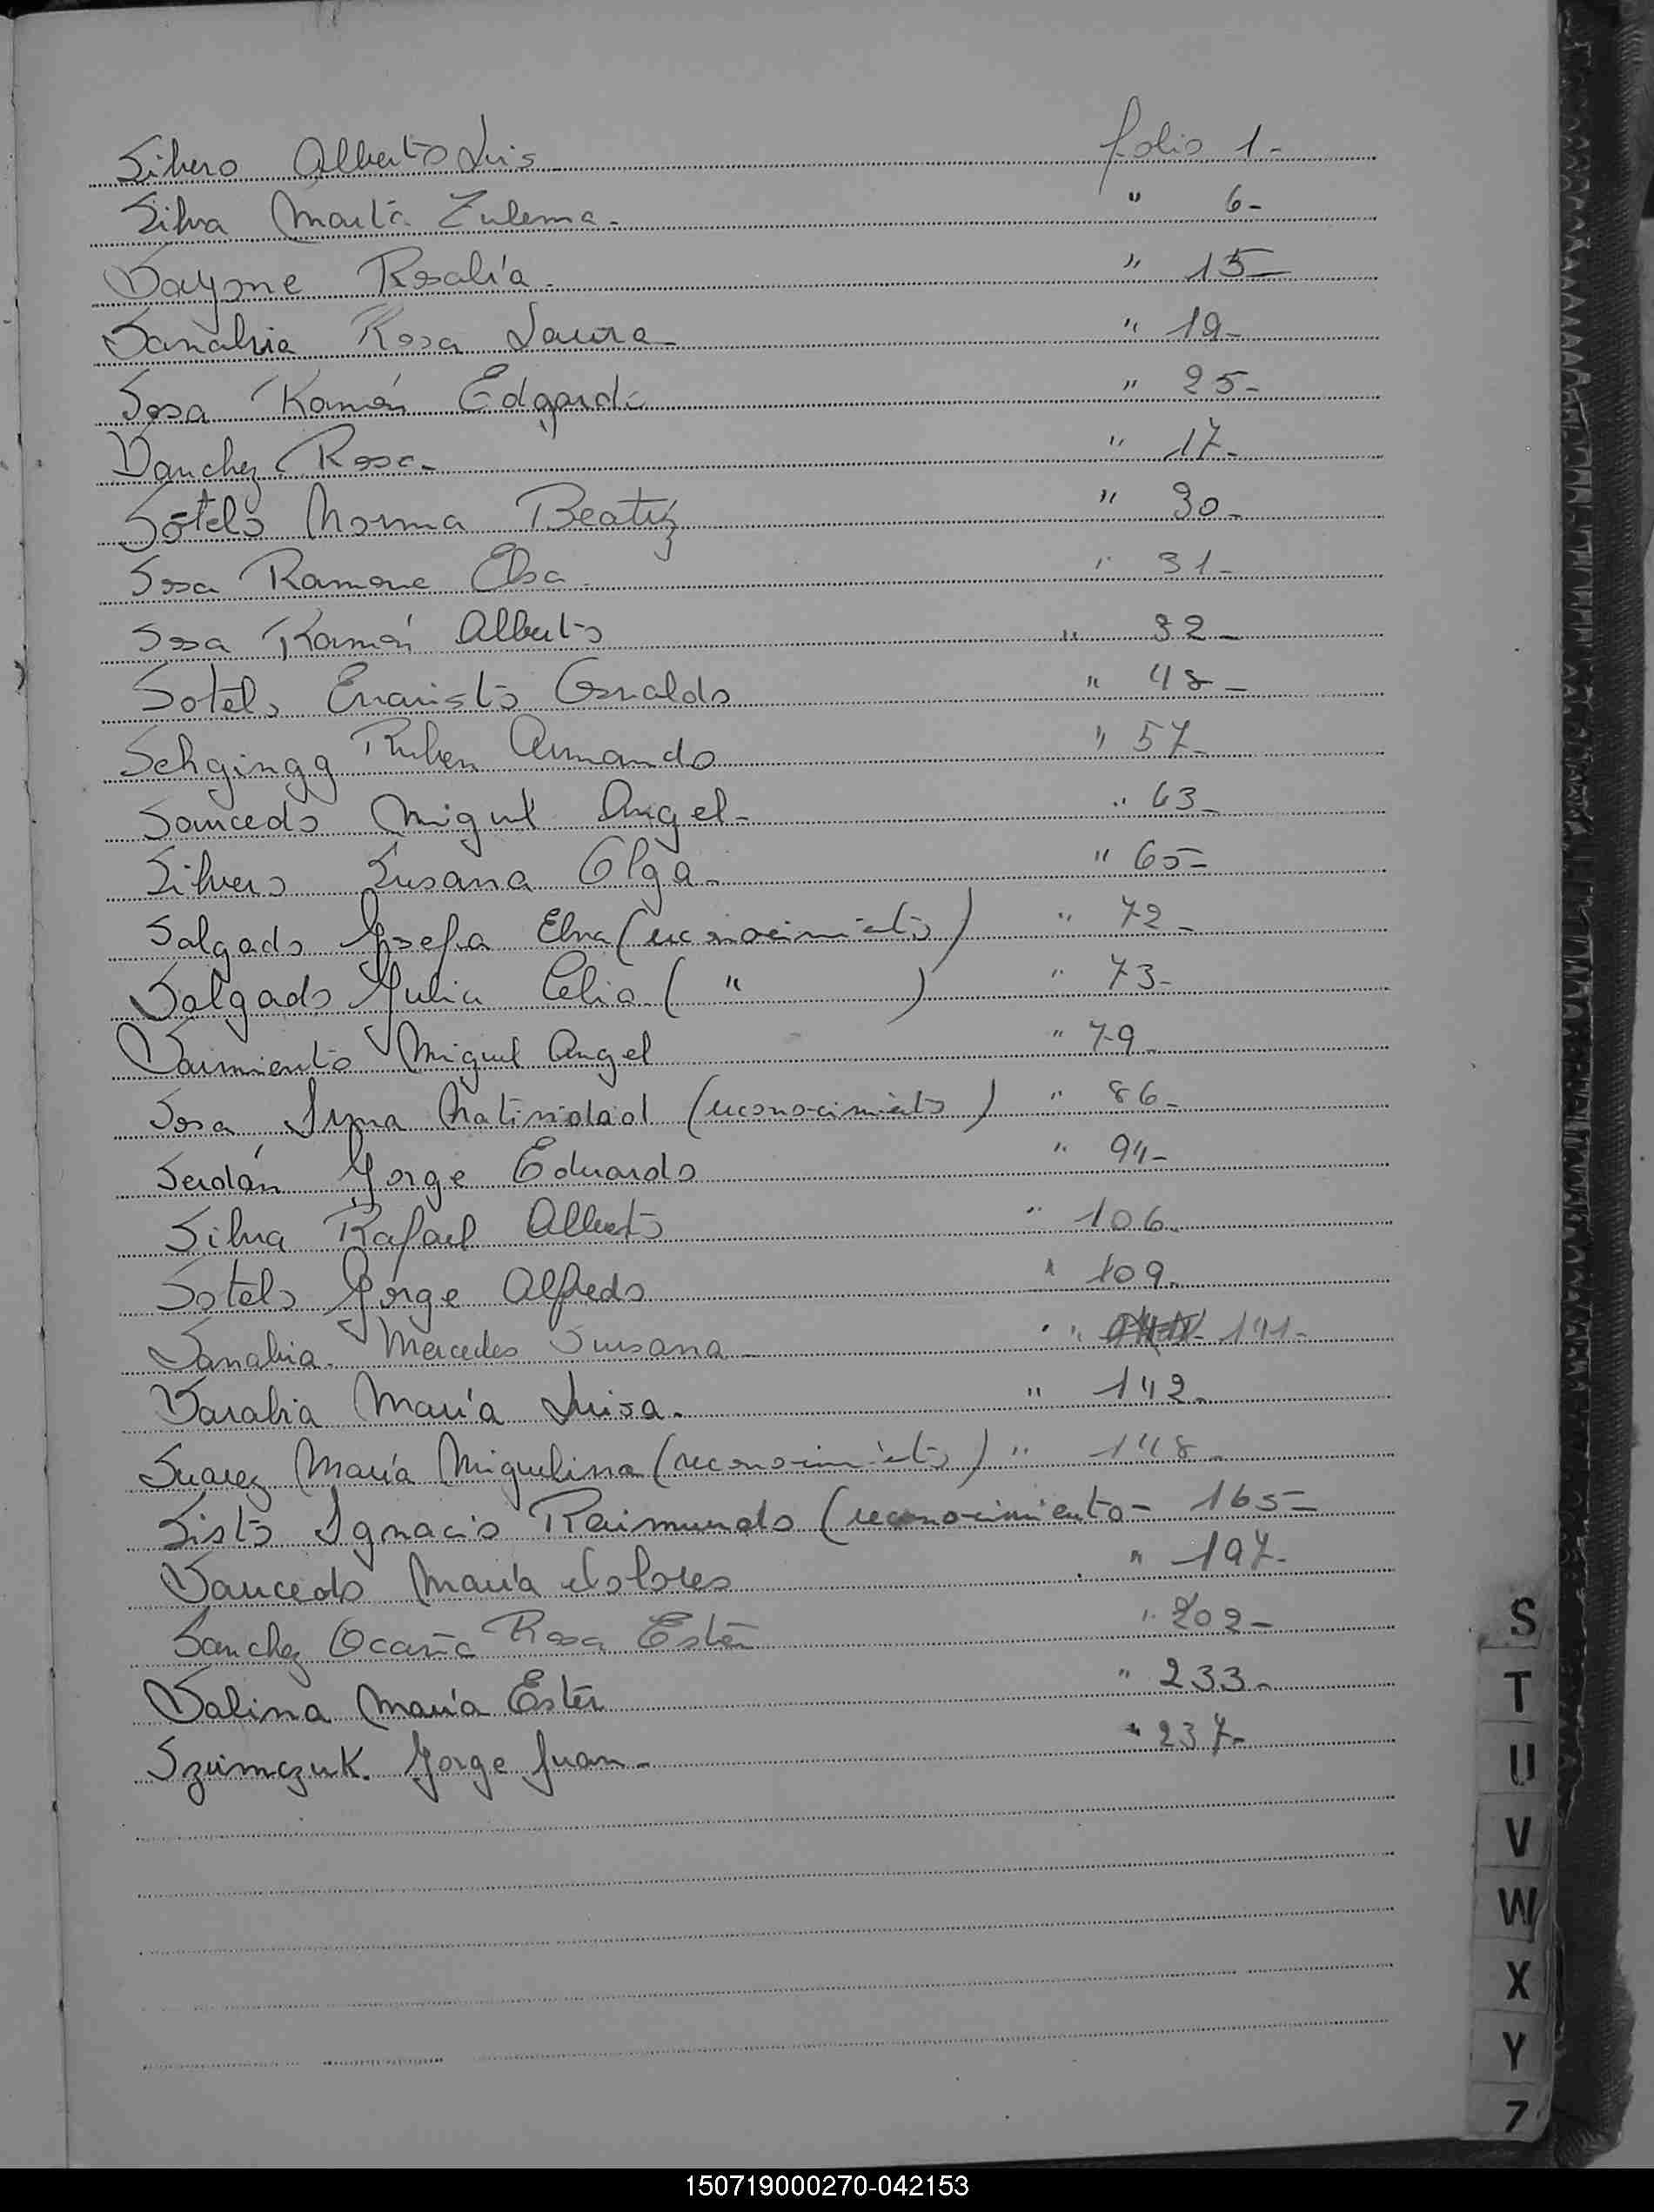 Silvero Alberto Luis folio 1-
Silva Marta Zulema- " 6-
Dayme Rosalía- " 15-
Sanabria Rosa Laura- " 19-
Sosa Ramón Edgardo " 25-
Sanchez Rosa- " 17-
Sotelo Norma Beatriz " 30-
Sosa Ramona Elsa- " 31-
Sosa Ramón Alberto " 32-
Sotelo Evaristo Osvaldo " 48-
Schgingg Ruben Armando " 57-
Saucedo Miguel Angel- " 63-
Silvero Susana Olga- " 65-
Salgado Josefa Elva (reconocimiento) " 72-
Salgado Julia Celia ( " ) " 73-
Sarmiento Miguel Angel " 79-
Sosa Irma Natividad (reconocimiento) " 86-
Serdán Jorge Eduardo " 94-
Silva Rafael Alberto " 106-
Sotelo Jorge Alfredo " 109-
Sanabria- Mercedes Susana- " 141-
Sarabia María Luisa- " 142-
Suarez María Miguelina (reconocimiento) " 148-
Sisto Ignacio Raimundo (reconocimiento- 165-
Saucedo María Dolores " 197-
Sanchez Ocaña Rosa Ester " 202-
Salina María Ester " 233-
Szumczuk. Jorge Juan- " 237-
S
T
U
V
W
X
Y
Z
150719000270-042153